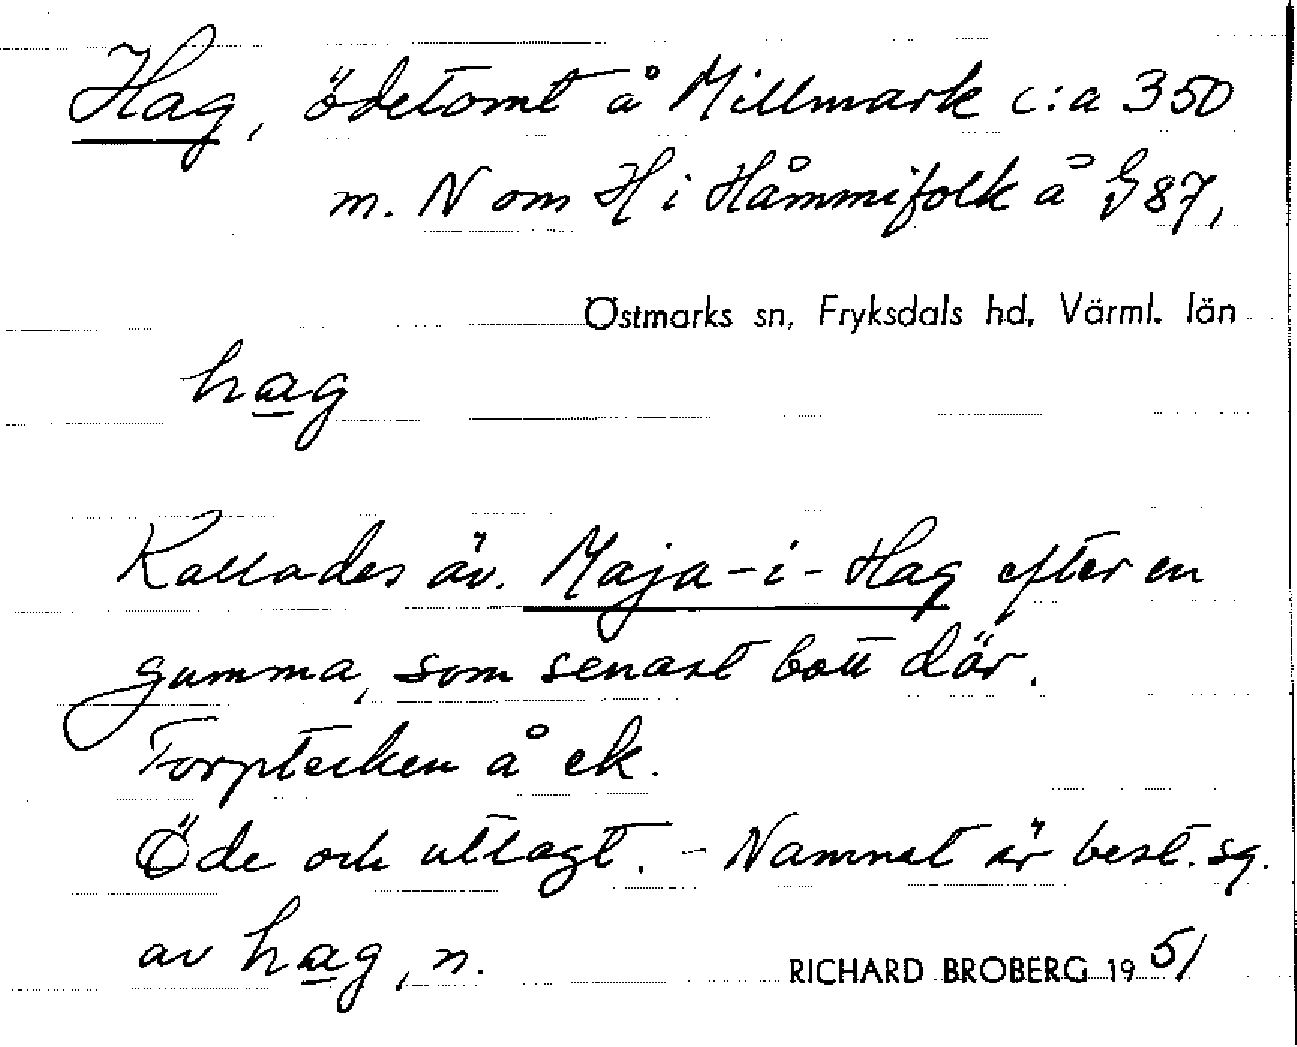 Hag, ödetomt å Millmark c:a 350
m. N om H i Håmmifolk å G 87,
Östmarks sn, Fryksdals hd, Värml. län
hag
Kallades äv. Maja-i-Hag efter en
gumma, som senast bott där.
Torptecken å ek.
Öde och utlagt. - Namnet är best. sg.
av hag, n.
RICHARD BROBERG 19 51